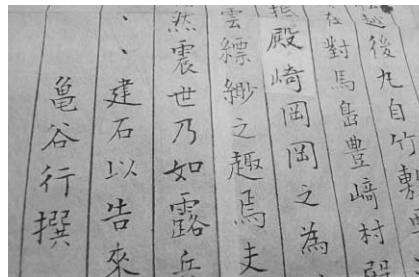 越後九自竹敷
在對馬島豊﨑村
殿崎岡岡之為
雲縹緲之趣焉夫
然震世乃如露兵
、、建石以告來
亀谷行撰